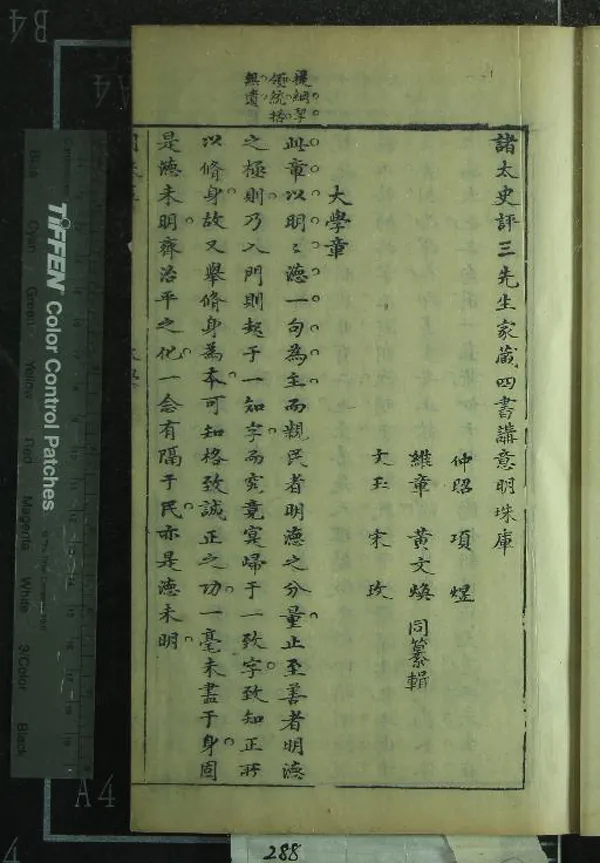 諸太史評三先生家藏四書講意明珠庫
仲昭 項煜
維章 黃文煥 同纂輯
文玉 宋玫
大學章
此章以明〻德一句為主而親民者明德之分量止至善者明德
之極則乃入門則起于一知字而究竟寔歸于一致字致知正所
以脩身故又舉脩身為本可知格致誠正之功一毫未盡于身固
是德未明齊治平之化一念有隔于民亦是德未明
提綱挈
領統括
無遺
B4
A4
TIFFEN Color Control Patches
Blue
Cyan
Green
Yellow
Red
Magenta
White
3/Color
Black
A4
4
288